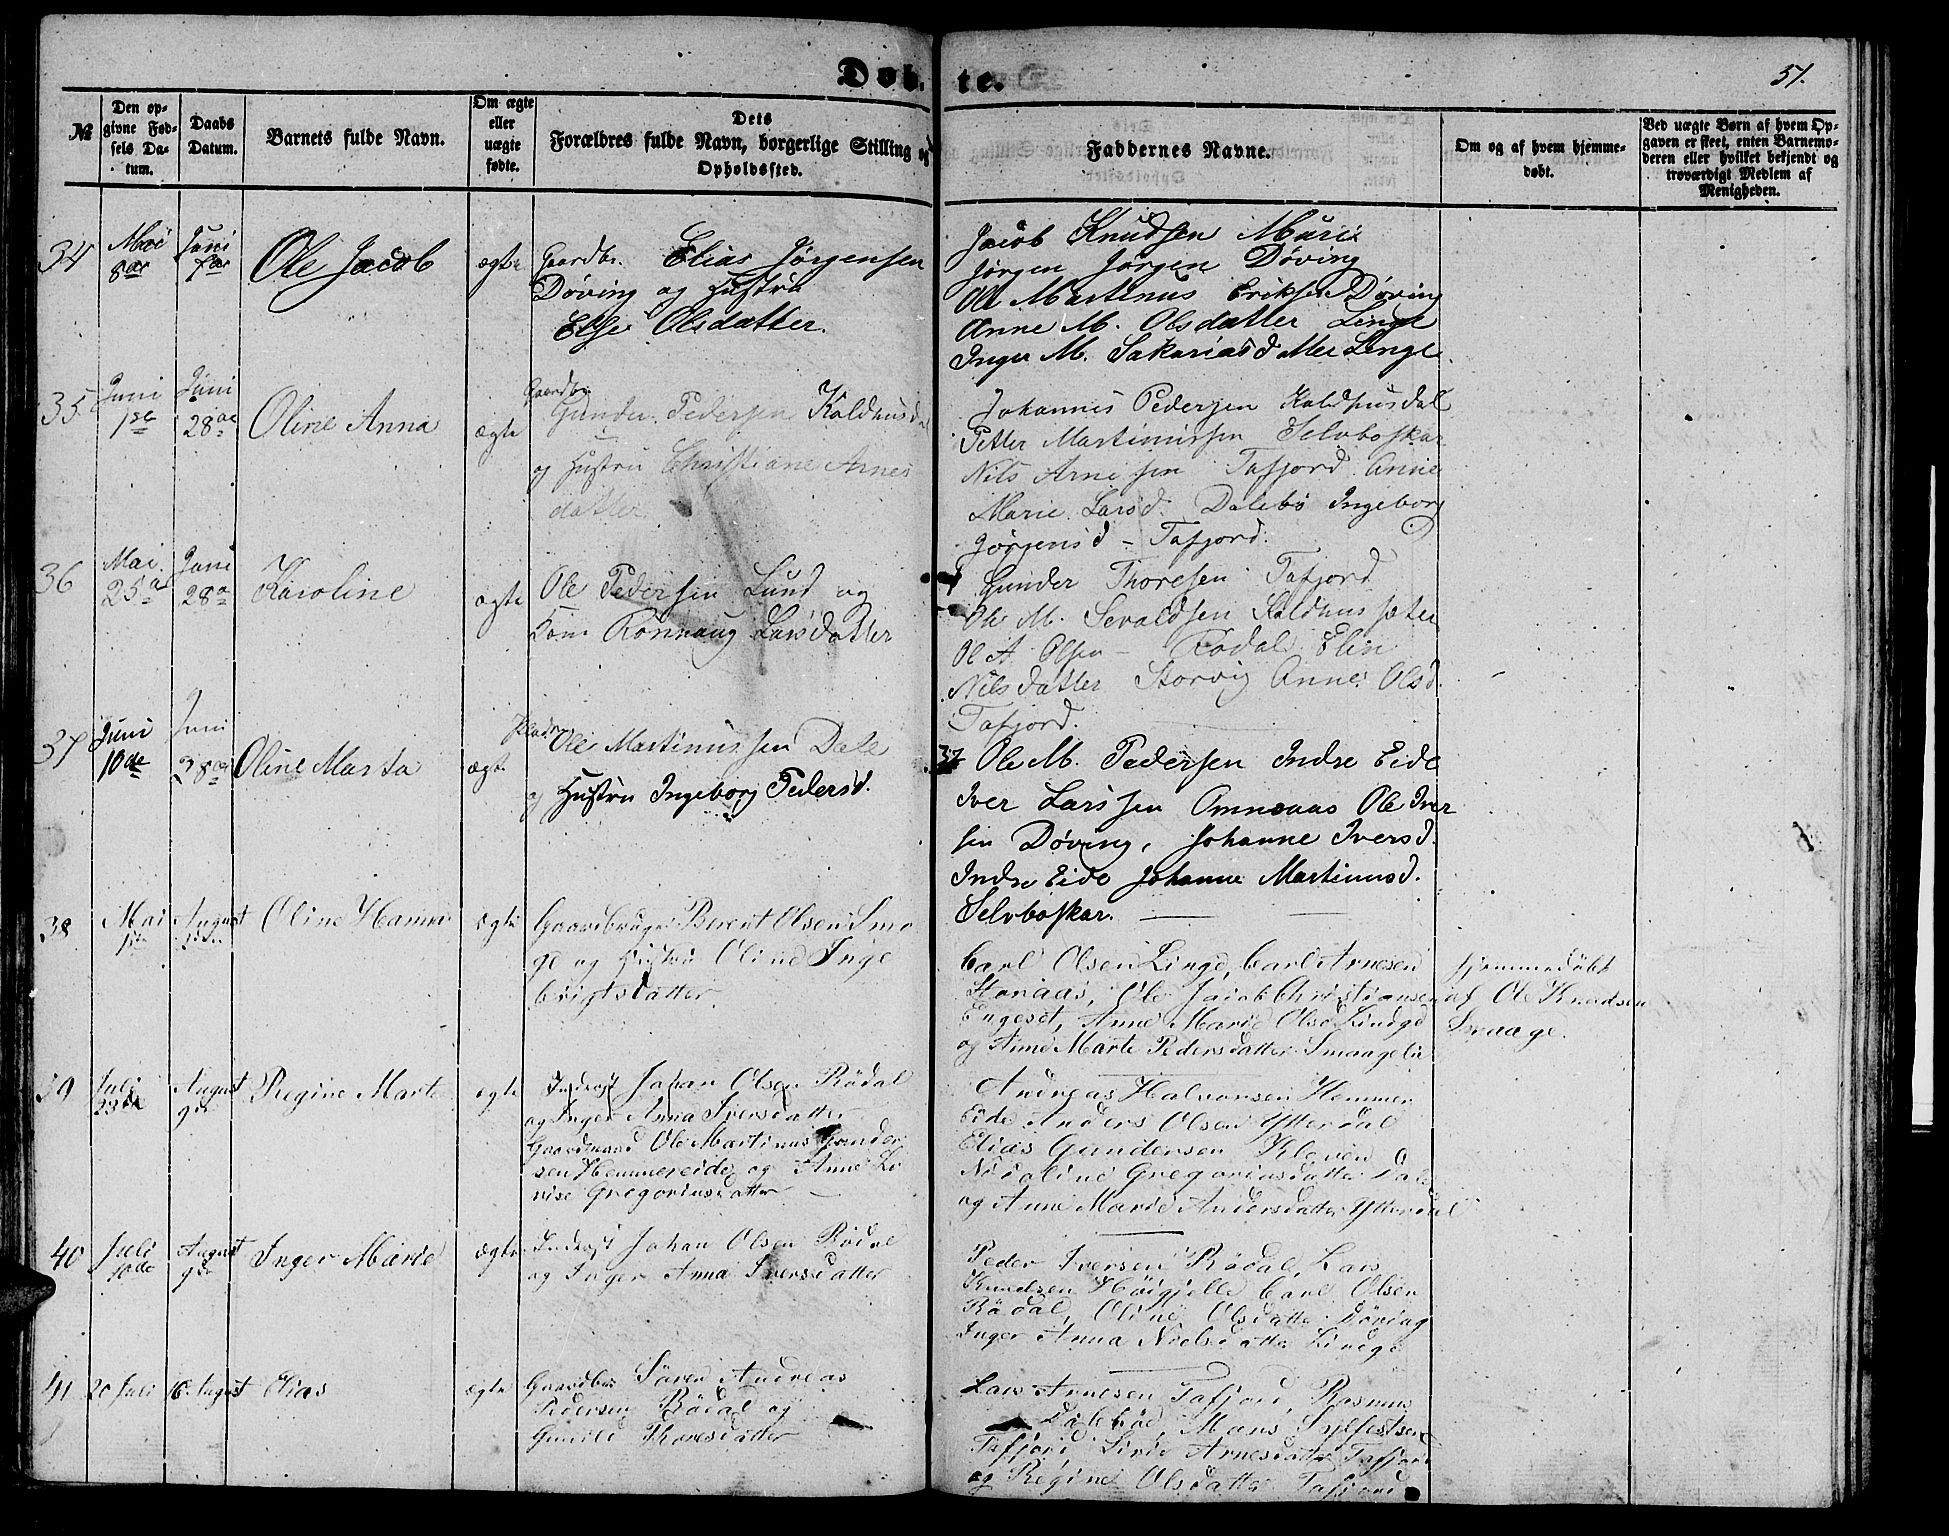 Døbte.
51.
№
Den opgivne Fødsels Datum.
Daabs Datum.
Barnets fulde Navn.
Om ægte eller uægte fødte.
Dets Forældres fulde Navn, borgerlige Stilling og Opholdssted.
Faddernes Navne.
Om og af hvem hjemmedøbt.
Ved uægte Børn af hvem Opgaven er skeet, enten Barnemoderen eller hvilket bekjendt og troværdigt Medlem af Menigheden.
34 Mai 8de Juni 7de Ole Jacob ægte
Gaardbr. Elias Jørgensen
Døving og Hustru
Else Olsdatter.
Jacob Knudsen
Jørgen Jørgen Døving
Ol Martinus Eriksen Døving
Anne M. Olsdatter Linge
Inger M. Sakariasdatter Linge.
35 Juni 1ste Juni 28de Oline Anna ægte
Gaardbr
Gunder Pedersen Kaldhusdal
og Hustru Christiane Arnes
datter
Johannes Pedersen Kaldhusdal
Petter Martinussen Selvboskar
Nils Arnesen Tafjord Anne
Marie Larsd. Dalebø Ingeborg
Jørgensd – Tafjord.
36 Mai 25de Juni 28de Karoline ægte
Ole Pedersen Lund og
Kone Rønnaug Larsdatter
Gunder Thoresen Tafjord
Ole M. Sevaldsen Kaldhussæter
Ol A Olsen – Rødal Elen
Nilsdatter Storvig Anne Olsd.
Tafjord.
37 Juni 10de Juni 28de Oline Marta ægte
Pladsm
Ole Martinussen Dale
og Hustru Ingeborg Pedersd.
37 Ole M. Pedersen Indre Eide
Iver Larssen Omnaas Ole Iver
sen Døving, Johanne Iversd.
Indre Eide Johanne Martinusd.
Selvboskar.
38 Mai August Oline Hanna ægte
Gaardbruger Berent Olsen Smo
ge og Hustru Oline Inge
brigtsdatter.
Carl Olsen Linge, Carl Arnesen
Ole Jacob Christiansen
Engeset, Anne Marie Olsd Lindge
og Anne Marte Pedersdatter Smaageli
hjemmedöbt
af Ole Knudsen
Smaage.
39 Juli 23de August 9de Regine Marte ægte
Inderst Johan Olsen Rödal
og Inger Anna Iversdatter
Gaardmand Ole Martinus Gunder
sen Hemmereide og Anne Lo
vise Gregoriusdatter
Andreas Halvorsen Hemmer
Eide Anders Olsen Ytterdal
Elias Gundersen Kleven
Nicoline Gregoriusdatter Dale
og Anne Marie Andersdatter Ytterdal
40 Juli 10de August 9de Inger Marie ægte
Inderst Johan Olsen Rödal
og Inger Anna Iversdatter
Peder Iversen Rödal, Lars
Knudsen Höigjelle Carl Olsen
Rödal, Oline Olsdatter Döving
Inger Anna Nielsdatter Lindge
41 20 Juli 16 August Elias ægte
Gaardbr Sören Andreas
Pedersen Rödal og
Gunild Thoresdatter
Lars Arnesen Tafjord, Rasmus
Dalebö, Mons Sylfestsen
Tafjord Sirie Arnesdatter Tafjord
og Regine Olsdatter Tafjord